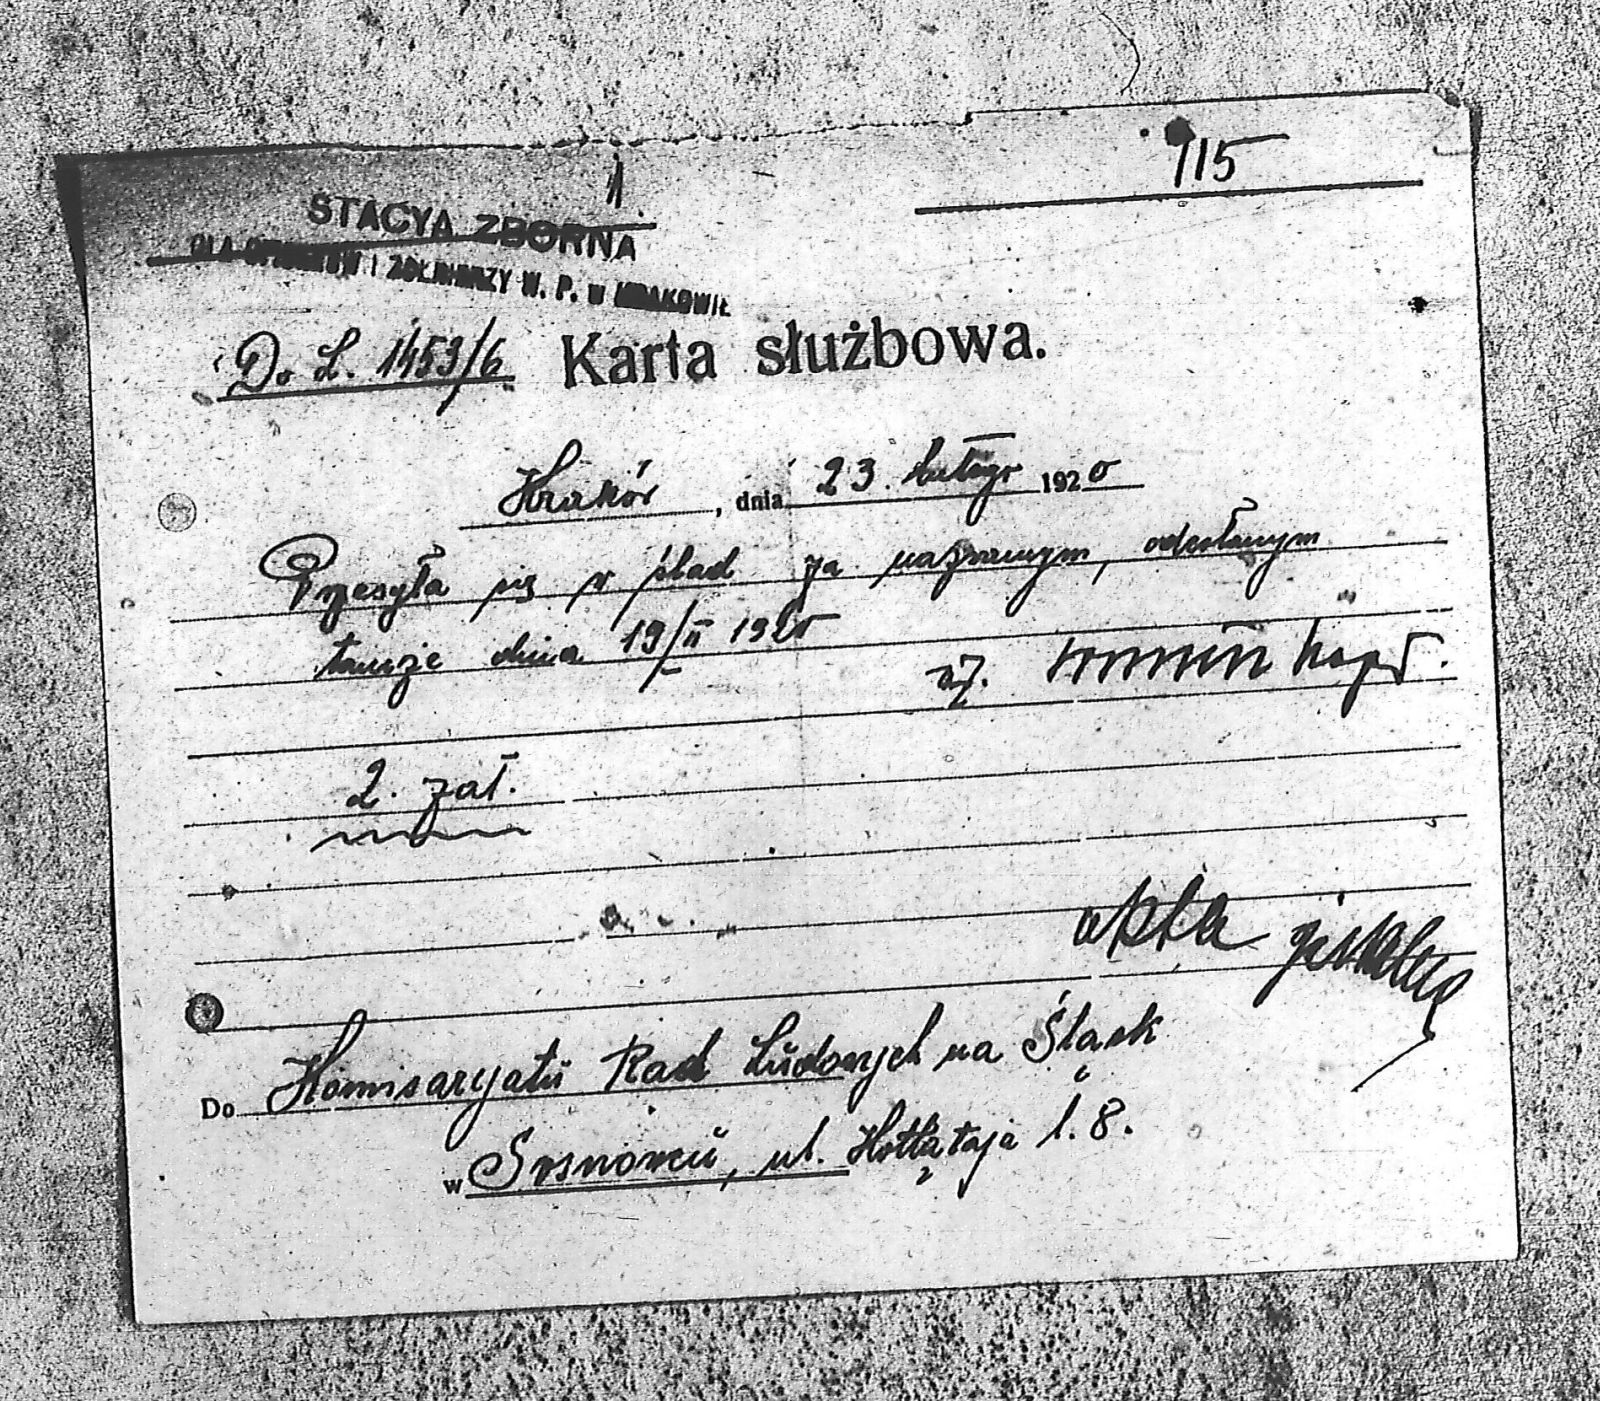 115
1
STACYA ZBORNA
DLA OFICERÓW I ŻOŁNIERZY W. P. w KRAKOWIE
Do L. 1453/6 Karta służbowa.
Kraków, dnia 23. lutego 1920
Przesyła się w ślad za nazwanym, odesłanym
tamże dnia 19/II 1920
2. zał.
akta
Do Komisaryatu Rad Ludowych na Śląsk
w Sosnowcu, ul. Kołłątaja l. 8.